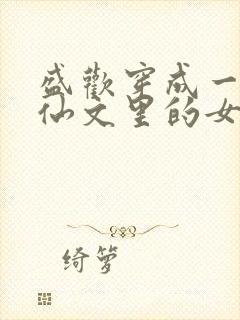 盛歡穿成一
仙文里的女
绮箩